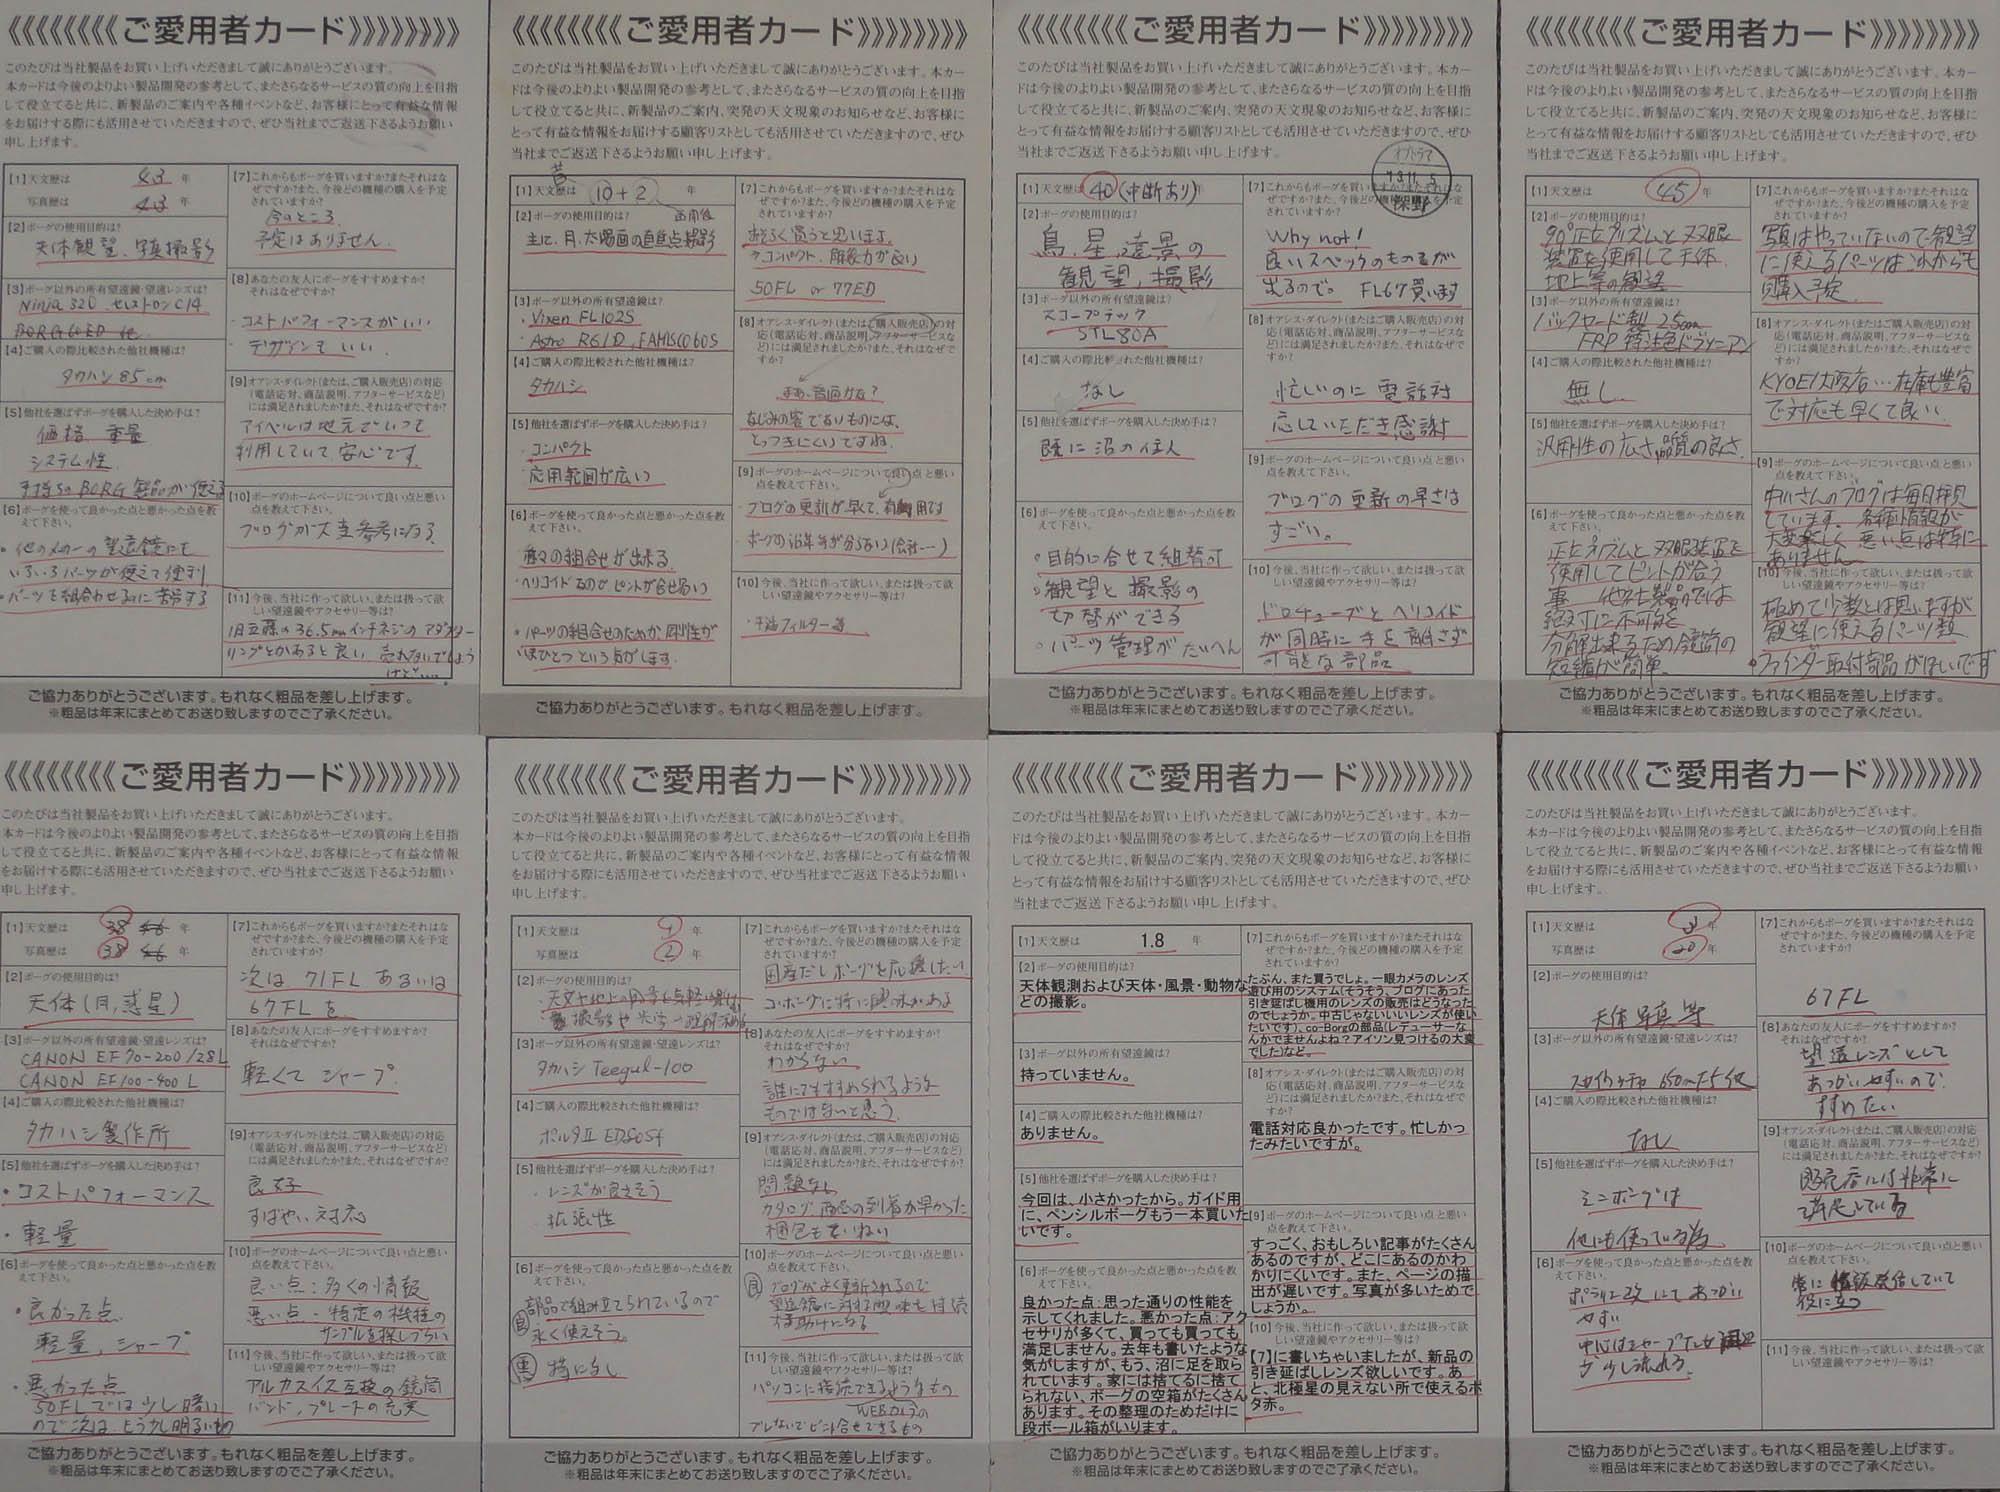 《《《《《《《《ご愛用者カード》》》》》》》》
このたびは当社製品をお買い上げいただきまして誠にありがとうございます。
本カードは今後のよりよい製品開発の参考として、またさらなるサービスの質の向上を目指
して役立てると共に、新製品のご案内や各種イベントなど、お客様にとって有益な情報
をお届けする際にも活用させていただきますので、ぜひ当社までご返送下さるようお願い
申し上げます。
【1】天文歴は 43 年
写真歴は 43 年
【2】ボーグの使用目的は?
天体観望、写真撮影
【3】ボーグ以外の所有望遠鏡・望遠レンズは?
Ninja 320 セレストロンC14
BORG60ED 他
【4】ご購入の際比較された他社機種は?
タカハシ 85cm
【5】他社を選ばずボーグを購入した決め手は?
価格 重量
システム性
手持ちのBORG製品が使える
【6】ボーグを使って良かった点と悪かった点を教
えて下さい。
・他のメーカーの望遠鏡にも
いろいろパーツが使えて便利
・パーツを組合わせるのに苦労する
【7】これからもボーグを買いますか?またそれはな
ぜですか?また、今後どの機種の購入を予定
されていますか?
今のところ
予定はありません
【8】あなたの友人にボーグをすすめますか?
それはなぜですか?
・コストパフォーマンスがいい
・デザインもいい
【9】オアシス・ダイレクト(または、ご購入販売店)の対応
(電話応対、商品説明、アフターサービスなど)
には満足されましたか?また、それはなぜですか?
アイベルは地元でいつも
利用していて安心です。
【10】ボーグのホームページについて良い点と悪い
点を教えて下さい。
ブログが大変参考になる
【11】今後、当社に作って欲しい、または扱って欲
しい望遠鏡やアクセサリー等は?
旧五藤の36.5mmインチネジのアダプター
リングとかあると良い 売れないでしょう
けど…。
ご協力ありがとうございます。もれなく粗品を差し上げます。
※粗品は年末にまとめてお送り致しますのでご了承ください。
《《《《《《《《ご愛用者カード》》》》》》》》
このたびは当社製品をお買い上げいただきまして誠にありがとうございます。本カー
ドは今後のよりよい製品開発の参考として、またさらなるサービスの質の向上を目指
して役立てると共に、新製品のご案内、突発の天文現象のお知らせなど、お客様に
とって有益な情報をお届けする顧客リストとしても活用させていただきますので、ぜひ
当社までご返送下さるようお願い申し上げます。
【1】天文歴は 昔 10+2 年
【2】ボーグの使用目的は?
主に、月、太陽面の直焦点撮影
【3】ボーグ以外の所有望遠鏡は?
・Vixen FL102S
・Astro R61D, FAMISCO60S
【4】ご購入の際比較された他社機種は?
タカハシ
【5】他社を選ばずボーグを購入した決め手は?
コンパクト
応用範囲が広い
【6】ボーグを使って良かった点と悪かった点を教
えて下さい。
・種々の組合せが出来る
・ヘリコイドなのでピントが合せ易い
・パーツの組合せのためか、剛性が
いまひとつという気がします。
【7】これからもボーグを買いますか?またそれはな
ぜですか?また、今後どの機種の購入を予定
されていますか?
おそらく買うと思います。
コンパクト、解像力が良い
50FL or 77ED
【8】オアシス・ダイレクト(またはご購入販売店)の対
応(電話応対、商品説明、アフターサービスな
ど)には満足されましたか?また、それはなぜで
すか?
まあ、普通かな?
なじみの客でないものには、
とっつきにくいですね。
【9】ボーグのホームページについて良い点と悪い
点を教えて下さい。
・ブログの更新が早くて、有用です
・ボーグの沿革等が分らない(会社…)
【10】今後、当社に作って欲しい、または扱って欲
しい望遠鏡やアクセサリー等は?
・干渉フィルター等
ご協力ありがとうございます。もれなく粗品を差し上げます。
《《《《《《《《ご愛用者カード》》》》》》》》
このたびは当社製品をお買い上げいただきまして誠にありがとうございます。本カー
ドは今後のよりよい製品開発の参考として、またさらなるサービスの質の向上を目指
して役立てると共に、新製品のご案内、突発の天文現象のお知らせなど、お客様に
とって有益な情報をお届けする顧客リストとしても活用させていただきますので、ぜひ
当社までご返送下さるようお願い申し上げます。
【1】天文歴は 40(中断あり) 年
【2】ボーグの使用目的は?
鳥、星、遠景の
観望、撮影
【3】ボーグ以外の所有望遠鏡は?
スコープテック
STL80A
【4】ご購入の際比較された他社機種は?
なし
【5】他社を選ばずボーグを購入した決め手は?
既に沼の住人
【6】ボーグを使って良かった点と悪かった点を教
えて下さい。
・目的に合せて組替可
・観望と撮影の
切替ができる
・パーツ管理がたいへん
【7】これからもボーグを買いますか?またそれはな
ぜですか?また、今後どの機種の購入を予定
されていますか?
Why not!
良いスペックのものが
出るので。 FL67買います
【8】オアシス・ダイレクト(またはご購入販売店)の対
応(電話応対、商品説明、アフターサービスな
ど)には満足されましたか?また、それはなぜで
すか?
忙しいのに電話対
応していただき感謝
【9】ボーグのホームページについて良い点と悪い
点を教えて下さい。
ブログの更新の早さは
すごい。
【10】今後、当社に作って欲しい、または扱って欲
しい望遠鏡やアクセサリー等は?
ドロチューブとヘリコイド
が同時に手を離さず
可能な部品
ご協力ありがとうございます。もれなく粗品を差し上げます。
※粗品は年末にまとめてお送り致しますのでご了承ください。
《《《《《《《《ご愛用者カード》》》》》》》》
このたびは当社製品をお買い上げいただきまして誠にありがとうございます。本カー
ドは今後のよりよい製品開発の参考として、またさらなるサービスの質の向上を目指
して役立てると共に、新製品のご案内、突発の天文現象のお知らせなど、お客様に
とって有益な情報をお届けする顧客リストとしても活用させていただきますので、ぜひ
当社までご返送下さるようお願い申し上げます。
【1】天文歴は 45 年
【2】ボーグの使用目的は?
90°正立プリズムと双眼
装置を使用して天体、
地上等の観望
【3】ボーグ以外の所有望遠鏡は?
バックヤード製 25cm
FRP 特注色ドブソニアン
【4】ご購入の際比較された他社機種は?
無し
【5】他社を選ばずボーグを購入した決め手は?
汎用性の広さ、品質の良さ
【6】ボーグを使って良かった点と悪かった点を教
えて下さい。
正立プリズムと双眼装置を
使用してピントが合う
事 他社製品では
絶対に不可能
分解出来るため鏡筒の
短縮が簡単
【7】これからもボーグを買いますか?またそれはな
ぜですか?また、今後どの機種の購入を予定
されていますか?
写真はやっていないので観望
に使えるパーツはこれからも
購入予定
【8】オアシス・ダイレクト(またはご購入販売店)の対
応(電話応対、商品説明、アフターサービスな
ど)には満足されましたか?また、それはなぜで
すか?
KYOEI大阪店…在庫も豊富
で対応も早くて良い
【9】ボーグのホームページについて良い点と悪い
点を教えて下さい。
中川さんのブログは毎日拝見
しています。各種情報が
大変楽しく 悪い点は特に
ありません
【10】今後、当社に作って欲しい、または扱って欲
しい望遠鏡やアクセサリー等は?
極めて少数とは思いますが
観望に使えるパーツ類
・ファインダー取付部品がほしいです
ご協力ありがとうございます。もれなく粗品を差し上げます。
※粗品は年末にまとめてお送り致しますのでご了承ください。
《《《《《《《《ご愛用者カード》》》》》》》》
このたびは当社製品をお買い上げいただきまして誠にありがとうございます。
本カードは今後のよりよい製品開発の参考として、またさらなるサービスの質の向上を目指
して役立てると共に、新製品のご案内や各種イベントなど、お客様にとって有益な情報
をお届けする際にも活用させていただきますので、ぜひ当社までご返送下さるようお願い
申し上げます。
【1】天文歴は 38 年
写真歴は 38 年
【2】ボーグの使用目的は?
天体(月、惑星)
【3】ボーグ以外の所有望遠鏡・望遠レンズは?
CANON EF70-200/2.8L
CANON EF100-400L
【4】ご購入の際比較された他社機種は?
タカハシ製作所
【5】他社を選ばずボーグを購入した決め手は?
・コストパフォーマンス
・軽量
【6】ボーグを使って良かった点と悪かった点を教
えて下さい。
・良かった点
軽量、シャープ
・悪かった点
50FLでは少し暗い
ので次は、もう少し明るいもの
【7】これからもボーグを買いますか?またそれはな
ぜですか?また、今後どの機種の購入を予定
されていますか?
次は 71FL あるいは
67FLを
【8】あなたの友人にボーグをすすめますか?
それはなぜですか?
軽くてシャープ
【9】オアシス・ダイレクト(または、ご購入販売店)の対応
(電話応対、商品説明、アフターサービスなど)
には満足されましたか?また、それはなぜですか?
良好
すばやい対応
【10】ボーグのホームページについて良い点と悪い
点を教えて下さい。
良い点:多くの情報
悪い点:特定の機種の
サンプルを探しづらい
【11】今後、当社に作って欲しい、または扱って欲
しい望遠鏡やアクセサリー等は?
アルカスイス互換の鏡筒
バンド、プレートの充実
ご協力ありがとうございます。もれなく粗品を差し上げます。
※粗品は年末にまとめてお送り致しますのでご了承ください。
《《《《《《《《ご愛用者カード》》》》》》》》
このたびは当社製品をお買い上げいただきまして誠にありがとうございます。
本カードは今後のよりよい製品開発の参考として、またさらなるサービスの質の向上を目指
して役立てると共に、新製品のご案内や各種イベントなど、お客様にとって有益な情報
をお届けする際にも活用させていただきますので、ぜひ当社までご返送下さるようお願い
申し上げます。
【1】天文歴は 年
写真歴は 2 年
【2】ボーグの使用目的は?
【3】ボーグ以外の所有望遠鏡・望遠レンズは?
タカハシ Teegul-100
【4】ご購入の際比較された他社機種は?
ポルタII ED80Sf
【5】他社を選ばずボーグを購入した決め手は?
・レンズが良さそう
・拡張性
【6】ボーグを使って良かった点と悪かった点を教
えて下さい。
部品で組み立てられているので
良 永く使えそう。
悪 特になし
【7】これからもボーグを買いますか?またそれはな
ぜですか?また、今後どの機種の購入を予定
されていますか?
国産だしボーグを応援したい
コ・ボーグに特に興味がある
【8】あなたの友人にボーグをすすめますか?
それはなぜですか?
わからない
誰にでもすすめられるような
ものではないと思う
【9】オアシス・ダイレクト(または、ご購入販売店)の対応
(電話応対、商品説明、アフターサービスなど)
には満足されましたか?また、それはなぜですか?
問題なし
カタログ、商品の到着が早かった
梱包もていねい
【10】ボーグのホームページについて良い点と悪い
点を教えて下さい。
良 ブログがよく更新されるので
望遠鏡に対する興味を持続
する助けになる
【11】今後、当社に作って欲しい、または扱って欲
しい望遠鏡やアクセサリー等は?
パソコンに接続できるようなもの
WEBカメラの
ブレないでピント合せできるもの
ご協力ありがとうございます。もれなく粗品を差し上げます。
※粗品は年末にまとめてお送り致しますのでご了承ください。
《《《《《《《《ご愛用者カード》》》》》》》》
このたびは当社製品をお買い上げいただきまして誠にありがとうございます。本カー
ドは今後のよりよい製品開発の参考として、またさらなるサービスの質の向上を目指
して役立てると共に、新製品のご案内、突発の天文現象のお知らせなど、お客様に
とって有益な情報をお届けする顧客リストとしても活用させていただきますので、ぜひ
当社までご返送下さるようお願い申し上げます。
【1】天文歴は 1.8 年
【2】ボーグの使用目的は?
天体観測および天体・風景・動物な
どの撮影。
【3】ボーグ以外の所有望遠鏡は?
持っていません。
【4】ご購入の際比較された他社機種は?
ありません。
【5】他社を選ばずボーグを購入した決め手は?
今回は、小さかったから。ガイド用
に、ペンシルボーグもう一本買いた
いです。
【6】ボーグを使って良かった点と悪かった点を教
えて下さい。
良かった点:思った通りの性能を
示してくれました。悪かった点:アク
セサリが多くて、買っても買っても
満足しません。去年も書いたような
気がしますが、もう、沼に足を取ら
れています。家には捨てるに捨て
られない、ボーグの空箱がたくさん
あります。その整理のためだけに
段ボール箱がいります。
【7】これからもボーグを買いますか?またそれはな
ぜですか?また、今後どの機種の購入を予定
されていますか?
たぶん、また買うでしょ。一眼カメラのレンズ
遊び用のシステム(そうそう、ブログにあった
引き延ばし機用のレンズの販売はどうなった
のでしょうか。中古じゃないいいレンズが使い
たいです)、co-Borgの部品(レデューサーな
んかでませんよね?アイソン見つけるの大変
でした)など。
【8】オアシス・ダイレクト(またはご購入販売店)の対
応(電話応対、商品説明、アフターサービスな
ど)には満足されましたか?また、それはなぜで
すか?
電話対応良かったです。忙しかっ
たみたいですが。
【9】ボーグのホームページについて良い点と悪い
点を教えて下さい。
すっごく、おもしろい記事がたくさん
あるのですが、どこにあるのかわ
かりにくいです。また、ページの描
出が遅いです。写真が多いためで
しょうか。
【10】今後、当社に作って欲しい、または扱って欲
しい望遠鏡やアクセサリー等は?
【7】に書いちゃいましたが、新品の
引き延ばしレンズ欲しいです。あ
と、北極星の見えない所で使えるポ
タ赤。
ご協力ありがとうございます。もれなく粗品を差し上げます。
※粗品は年末にまとめてお送り致しますのでご了承ください。
《《《《《《《《ご愛用者カード》》》》》》》》
このたびは当社製品をお買い上げいただきまして誠にありがとうございます。
本カードは今後のよりよい製品開発の参考として、またさらなるサービスの質の向上を目指
して役立てると共に、新製品のご案内や各種イベントなど、お客様にとって有益な情報
をお届けする際にも活用させていただきますので、ぜひ当社までご返送下さるようお願い
申し上げます。
【1】天文歴は 年
写真歴は 20 年
【2】ボーグの使用目的は?
天体写真等
【3】ボーグ以外の所有望遠鏡・望遠レンズは?
【4】ご購入の際比較された他社機種は?
なし
【5】他社を選ばずボーグを購入した決め手は?
ミニボーグは
他にも使っている為
【6】ボーグを使って良かった点と悪かった点を教
えて下さい。
【7】これからもボーグを買いますか?またそれはな
ぜですか?また、今後どの機種の購入を予定
されていますか?
67FL
【8】あなたの友人にボーグをすすめますか?
それはなぜですか?
望遠レンズとして
あつかいやすいので
すすめたい
【9】オアシス・ダイレクト(または、ご購入販売店)の対応
(電話応対、商品説明、アフターサービスなど)
には満足されましたか?また、それはなぜですか?
販売店には非常に
満足している
【10】ボーグのホームページについて良い点と悪い
点を教えて下さい。
常に情報発信していて
役に立つ
【11】今後、当社に作って欲しい、または扱って欲
しい望遠鏡やアクセサリー等は?
ご協力ありがとうございます。もれなく粗品を差し上げます。
※粗品は年末にまとめてお送り致しますのでご了承ください。